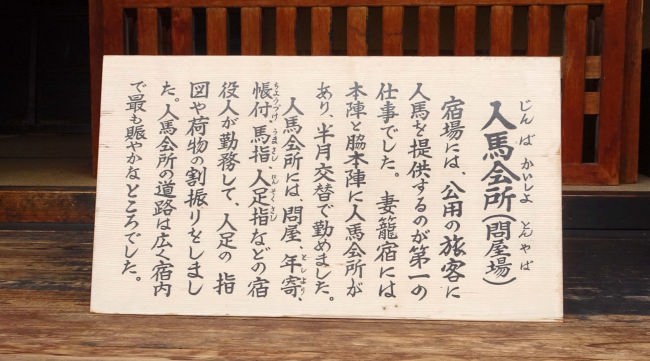 じんばかいしよ とんやば
人馬会所(問屋場)
宿場には、公用の旅客に
人馬を提供するのが第一の
仕事でした。 妻籠宿には
本陣と脇本陣に人馬会所が
あり、半月交替で勤めました。
としより
人馬会所には、問屋、年寄、
ちようづけ うまさし にんそくさし
帳付、馬指、人足指などの宿
役人が勤務して、人足の 指
図や荷物の割振りをしまし
た。人馬会所の道路は広く宿内
で最も賑やかなところでした。